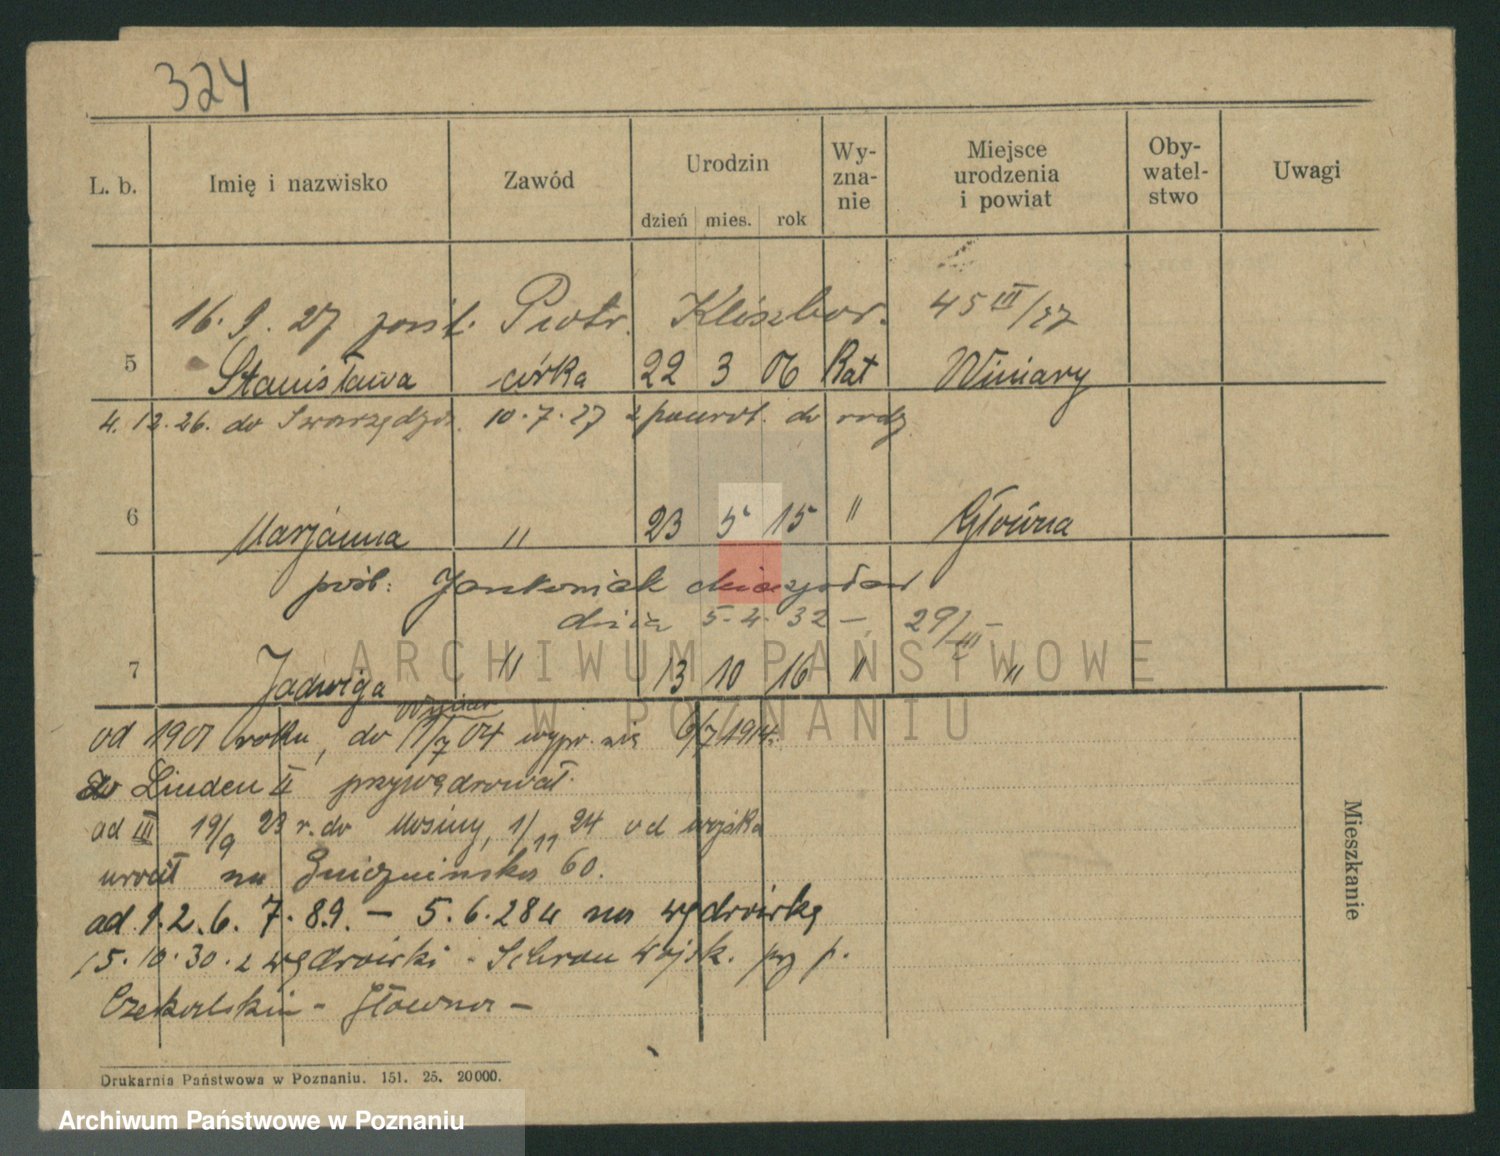 324
L. b. Imię i nazwisko Zawód Urodzin dzień mies. rok Wy-zna-nie Miejsce urodzenia i powiat Oby-watel-stwo Uwagi
16. 9. 27 Piotr 45 III/27
5 Stanisława córka 22 3 06 Kat Winiary
4. 12. 26. do Swarzędza. 10. 7. 27 z powrot. do rodz
6 Marjanna " 23 5 15 " Główna
pośl: Jankowiak
dnia 5. 4. 32 — 29/III —
7 Jadwiga " 13 10 16 " "
ARCHIWUM PAŃSTWOWE
W POZNANIU
od 1901 roku, do 04 6/7 1914.
do Linden II przywędrował
ad III 19/9 23 r. do Mosiny, 1/11 24 od wojska
wrócił na Gnieźnińska 60.
ad. 1. 2. 6. 7. 8 9. — 5. 6. 28 na wędrówkę
15. 10. 30. z wędrówki - Schron wojsk. przy p.
- Główna -
Mieszkanie
Drukarnia Państwowa w Poznaniu. 151. 25. 20 000.
Archiwum Państwowe w Poznaniu